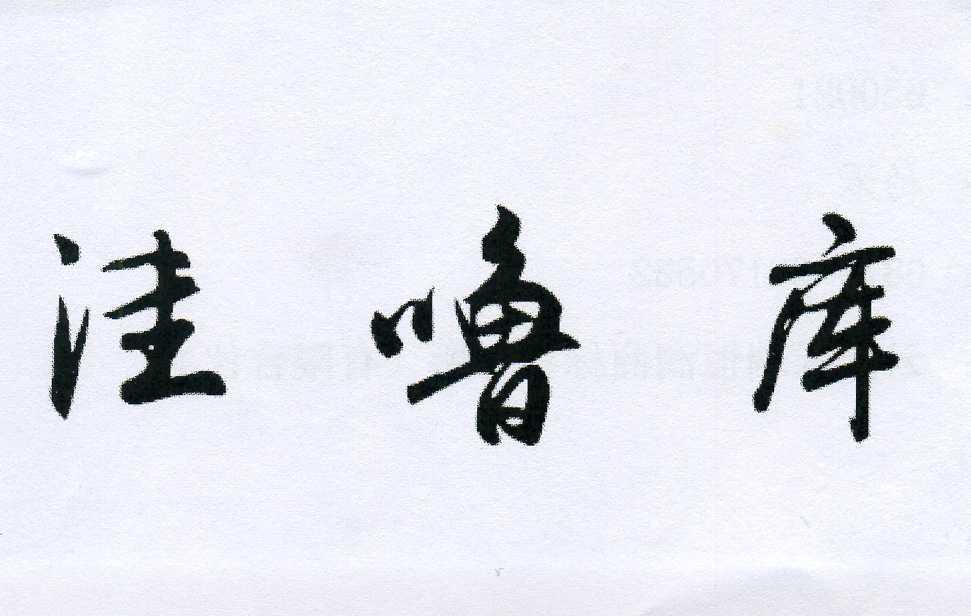 洼噜库